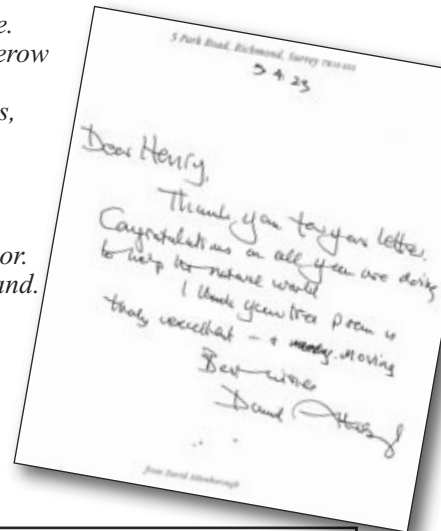 e.
erow
s,
or.
and.
5 Park Road, Richmond, Surrey
3 4 23
Dear Henry,
Thank you for your letter.
Congratulations on all you are doing
to help the natural world
I think your tree poem is
truly excellent – & moving
Best wishes
David Attenborough
from David Attenborough